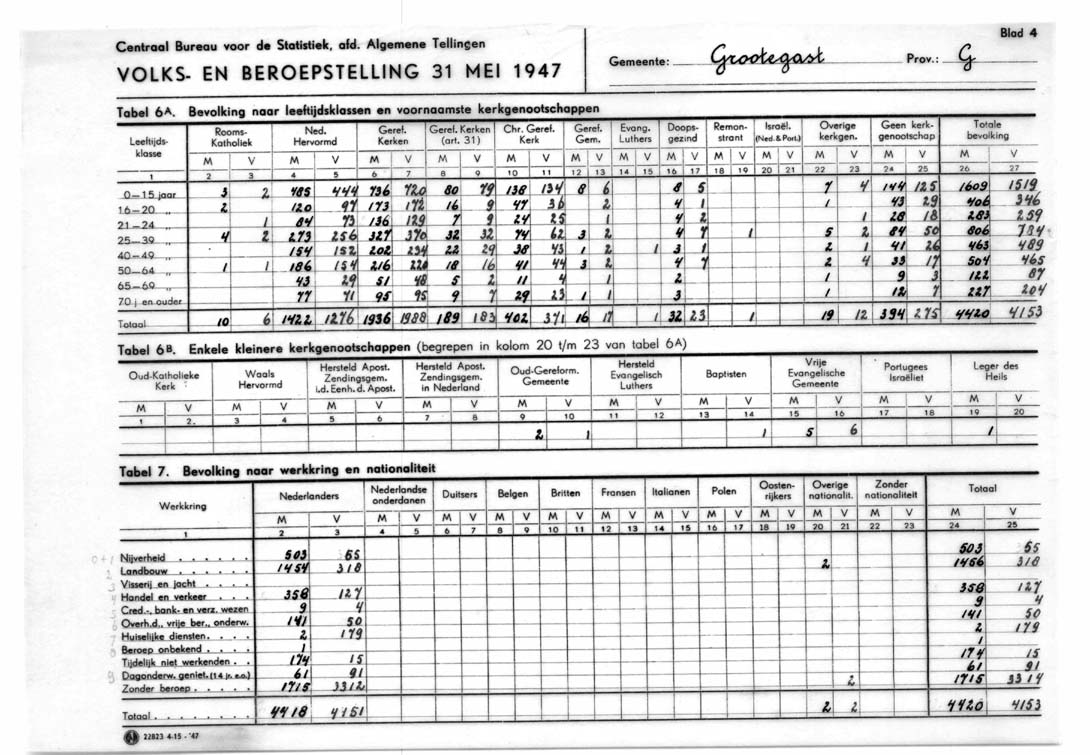 Blad 4
Centraal Bureau voor de Statistiek, afd. Algemene Tellingen
VOLKS- EN BEROEPSTELLING 31 MEI 1947
Gemeente: Grootegast Prov.: G
Tabel 6A. Bevolking naar leeftijdsklassen en voornaamste kerkgenootschappen
Leeftijdsklasse | Rooms-Katholiek | Ned. Hervormd | Geref. Kerken | Geref. Kerken (art. 31) | Chr. Geref. Kerk | Geref. Gem. | Evang. Luthers | Doopsgezind | Remonstrant | Israël. (Ned. & Port.) | Overige kerkgen. | Geen kerkgenootschap | Totale bevolking
M V M V M V M V M V M V M V M V M V M V M V M V M V
1 2 3 4 5 6 7 8 9 10 11 12 13 14 15 16 17 18 19 20 21 22 23 24 25 26 27
0—15 jaar 3 2 485 444 736 720 80 79 138 134 8 6 8 5 7 4 144 125 1609 1519
16—20 „ 2 120 97 173 172 16 9 47 36 2 4 1 1 43 29 406 346
21—24 „ 1 84 73 136 129 7 9 24 25 1 4 2 1 28 18 283 259
25—39 „ 4 2 273 256 327 370 32 32 74 62 3 2 4 7 1 5 2 84 50 806 784
40—49 „ 154 152 202 234 22 29 38 43 1 2 1 3 1 2 1 41 26 463 489
50—64 „ 1 1 186 154 216 220 18 16 41 44 3 2 4 7 2 4 33 17 504 465
65—69 „ 43 29 51 48 5 2 11 4 1 2 1 9 3 122 87
70 j en ouder 77 71 95 95 9 7 29 23 1 1 3 1 12 7 227 204
Totaal 10 6 1422 1276 1936 1988 189 183 402 371 16 17 1 32 23 1 19 12 394 275 4420 4153
Tabel 6B. Enkele kleinere kerkgenootschappen (begrepen in kolom 20 t/m 23 van tabel 6A)
Oud-Katholieke Kerk | Waals Hervormd | Hersteld Apost. Zendingsgem. i.d. Eenh. d. Apost. | Hersteld Apost. Zendingsgem. in Nederland | Oud-Gereform. Gemeente | Hersteld Evangelisch Luthers | Baptisten | Vrije Evangelische Gemeente | Portugees Israëliet | Leger des Heils
M V M V M V M V M V M V M V M V M V M V
1 2. 3 4 5 6 7 8 9 10 11 12 13 14 15 16 17 18 19 20
2 1 1 5 6 1
Tabel 7. Bevolking naar werkkring en nationaliteit
Werkkring | Nederlanders | Nederlandse onderdanen | Duitsers | Belgen | Britten | Fransen | Italianen | Polen | Oostenrijkers | Overige nationalit. | Zonder nationaliteit | Totaal
M V M V M V M V M V M V M V M V M V M V M V M V
1 2 3 4 5 6 7 8 9 10 11 12 13 14 15 16 17 18 19 20 21 22 23 24 25
Nijverheid . . . . . . 503 65 503 65
Landbouw . . . . . . . 1454 318 2 1456 318
Visserij en jacht . . . .
Handel en verkeer . . . . 358 127 358 127
Cred.-, bank- en verz. wezen 9 4 9 4
Overh.d., vrije ber., onderw. 141 50 141 50
Huiselijke diensten. . . . 2 179 2 179
Beroep onbekend . . . . 1 1
Tijdelijk niet werkenden . . 174 15 174 15
Dagonderw. geniet. (14 jr. e.o.) 61 91 61 91
Zonder beroep . . . . . 1715 3312 2 1715 3314
Totaal . . . . . . . . 4418 4151 2 2 4420 4153
22823 4-15 - '47